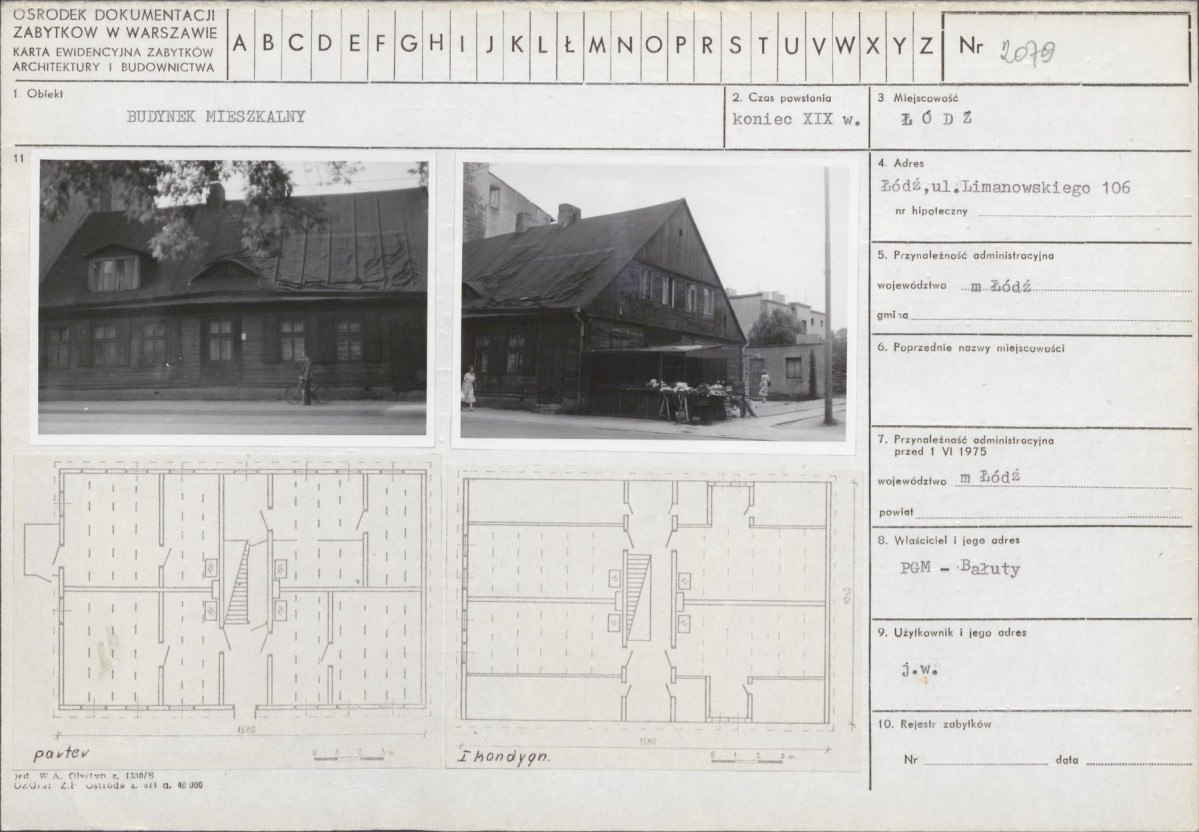 OŚRODEK DOKUMENTACJI
ZABYTKÓW W WARSZAWIE
KARTA EWIDENCYJNA ZABYTKÓW
ARCHITEKTURY I BUDOWNICTWA
A B C D E F G H I J K L Ł M N O P R S T U V W X Y Z
Nr 2079
1. Obiekt
BUDYNEK MIESZKALNY
2. Czas powstania
koniec XIX w.
3 Miejscowość
Ł Ó D Ź
11
4. Adres
Łódź,ul.Limanowskiego 106
nr hipoteczny
5. Przynależność administracyjna
województwo m Łódź
gmina
6. Poprzednie nazwy miejscowości
7. Przynależność administracyjna
przed 1 VI 1975
województwo m Łódź
powiat
8. Właściciel i jego adres
PGM - Bałuty
9. Użytkownik i jego adres
j.w.
10. Rejestr zabytków
Nr data
1580
parter
0 1 2 3 m
1580
I kondygn.
0 1 2 3 m
jed. W.A. Olsztyn z. 1330/S
a. 40 000